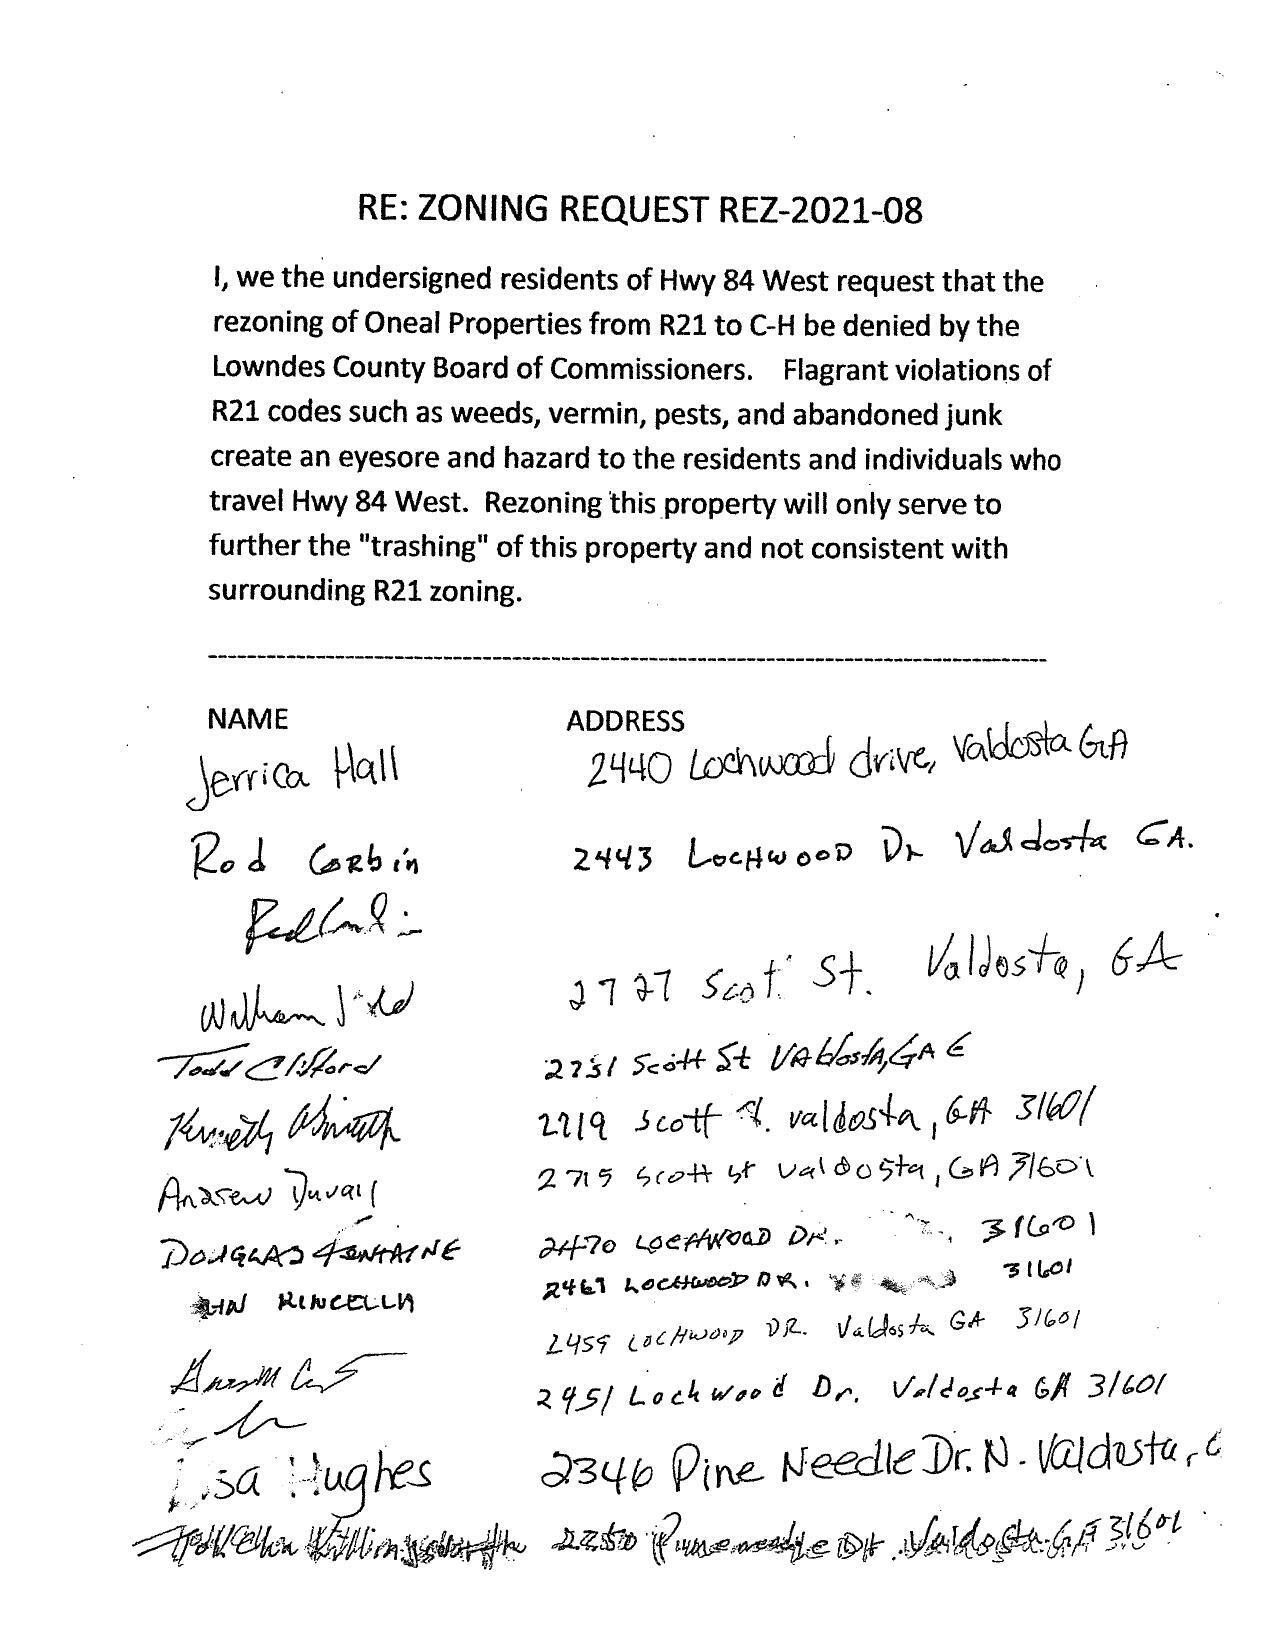 RE: ZONING REQUEST REZ-2021-08
I, we the undersigned residents of Hwy 84 West request that the
rezoning of Oneal Properties from R21 to C-H be denied by the
Lowndes County Board of Commissioners. Flagrant violations of
R21 codes such as weeds, vermin, pests, and abandoned junk
create an eyesore and hazard to the residents and individuals who
travel Hwy 84 West. Rezoning this property will only serve to
further the "trashing" of this property and not consistent with
surrounding R21 zoning.
NAME ADDRESS
Jerrica Hall 2440 Lochwood drive, Valdosta GA
Rod Corbin 2443 LOCHWOOD Dr Valdosta GA.
William 2727 Scot St. Valdosta, GA
Todd Clifford 2731 Scott St VAldostA, GA
Kenneth 2719 Scott St. valdosta, GA 31601
Andrew Duvall 2715 Scott St Valdosta, GA 31601
DOUGLAS FONTAINE 2470 LOCHWOOD DR. 31601
RINCELLA 2467 LOCHWOOD DR. 31601
2459 LOCHWOOD DR. Valdosta GA 31601
2451 Lochwood Dr. Valdosta GA 31601
Lisa Hughes 2346 Pine Needle Dr. N. Valdosta,
Valdosta GA 31601